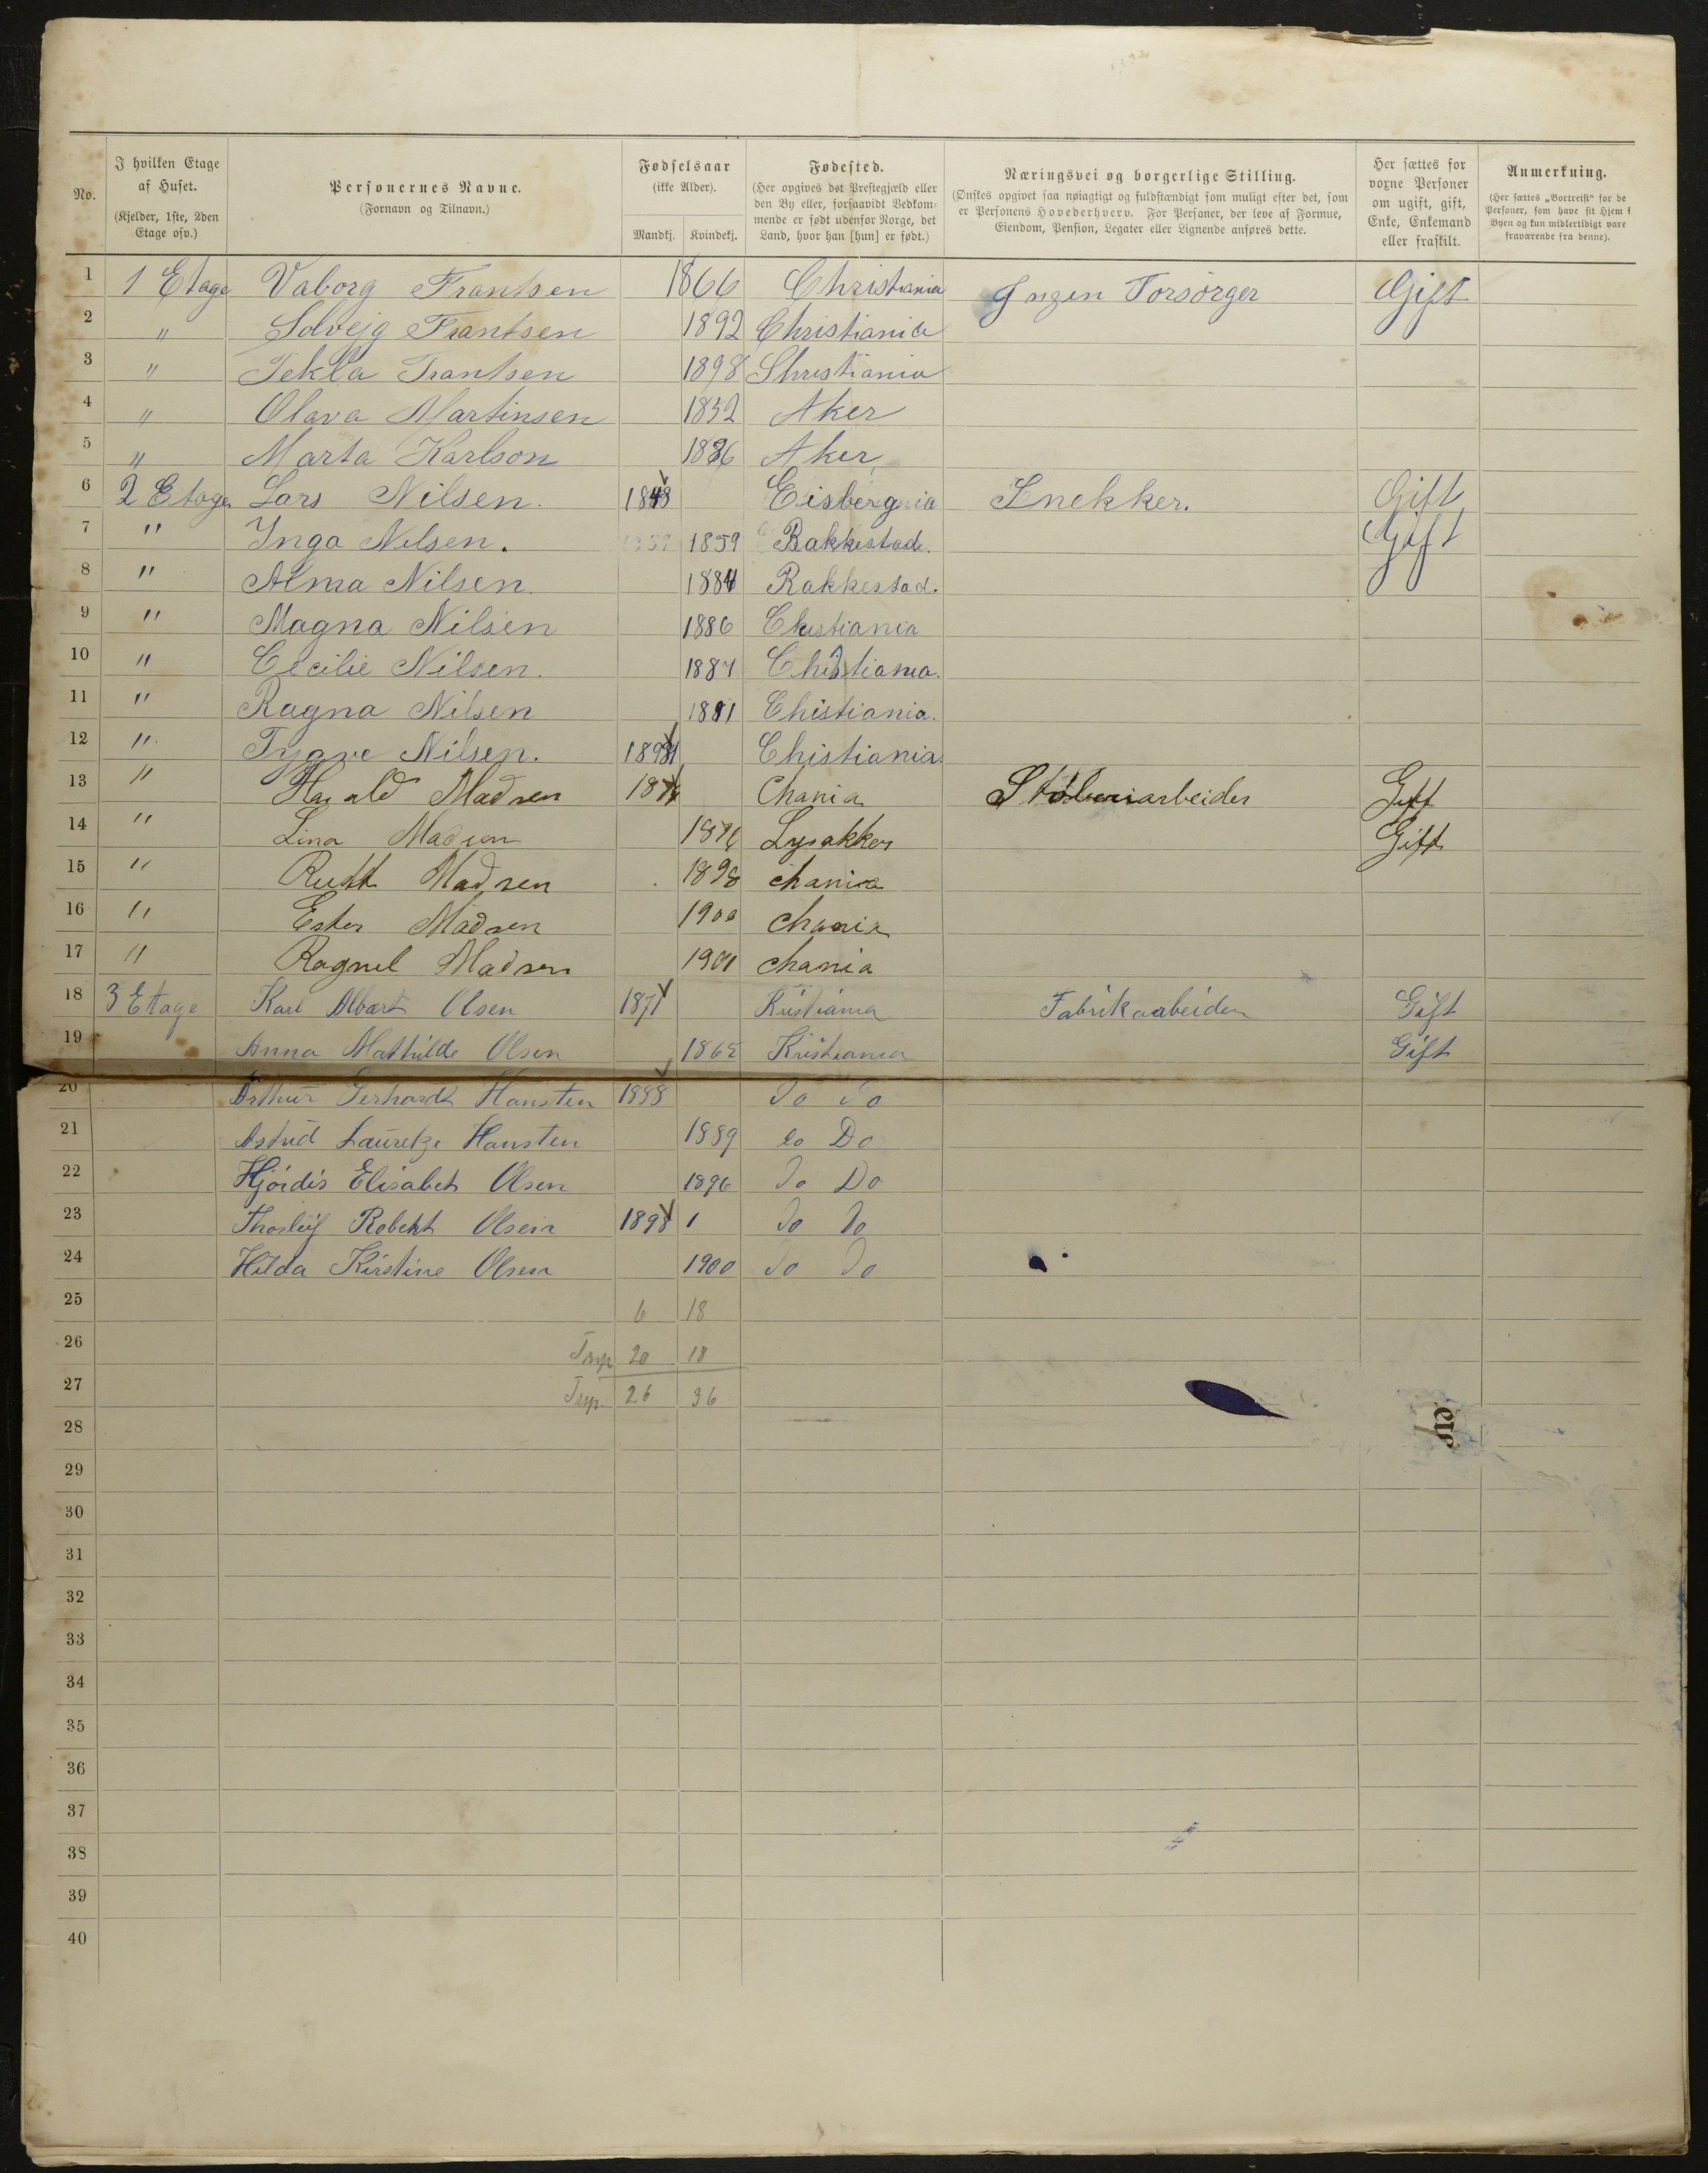 No.
I hvilken Etage af Huset. (Kjelder, 1ste, 2den Etage osv.)
Personernes Navne. (Fornavn og Tilnavn.)
Fødselsaar (ikke Alder). Mandkj. Kvindekj.
Fødested. (Her opgives det Prestegjæld eller den By eller, forsaavidt Vedkommende er født udenfor Norge, det Land, hvor han [hun] er født.)
Næringsvei og borgerlige Stilling. (Ønskes opgivet saa nøiagtigt og fuldstændigt som muligt efter det, som er Personens Hovederhverv. For Personer, der leve af Formue, Eiendom, Pension, Legater eller Lignende anføres dette.
Her sættes for voxne Personer om ugift, gift, Enke, Enkemand eller fraskilt.
Anmerkning. (Her sættes „Bortreist“ for de Personer, som have sit Hjem i Byen og kun midlertidigt vare fraværende fra denne).
1 1 Etage Vaborg Frantsen 1866 Christiania Ingen Forsörger Gift
2 " Solvejg Frantsen 1892 Christiania
3 " Tekla Frantsen 1898 Christiania
4 " Olava Martinsen 1832 Aker
5 " Marta Karlson 1886 Aker
6 2 Etage Lars Nilsen. 1848 Eisberg Snekker. Gift
7 " Inga Nilsen. 1859 Rakkestad. Gift
8 " Alma Nilsen. 1884 Rakkestad.
9 " Magna Nilsen 1886 Chistiania
10 " Cecilie Nilsen. 1887 Chistiania.
11 " Ragna Nilsen 1891 Chistiania.
12 " Tygve Nilsen. Chistiania.
13 " Harald Madsen Chania Støberiarbeider Gift
14 " Lina Madsen 1876 Lysakker Gift
15 " Ruth Madsen 1898 Chania
16 " Ester Madsen 1900 Chania
17 " Ragnel Madsen 1901 Chania
18 3 Etage Karl Albart Olsen 1871 Kristiania Fabrikaarbeider Gift
19 Anna Mathilde Olsen 1865 Kristiania Gift
20 Arthur Gerhardt Hansten 1888 Do Do
21 Astrid Lauretze Hansten 1889 Do Do
22 Hjördis Elisabet Olsen 1896 Do Do
23 Thorleif Robert Olsen 1898 1 Do Do
24 Hilda Kirstine Olsen 1900 Do Do
25 6 18
26 Trsp 20 18
27 Trsp. 26 36
28
29
30
31
32
33
34
35
36
37
38
39
40